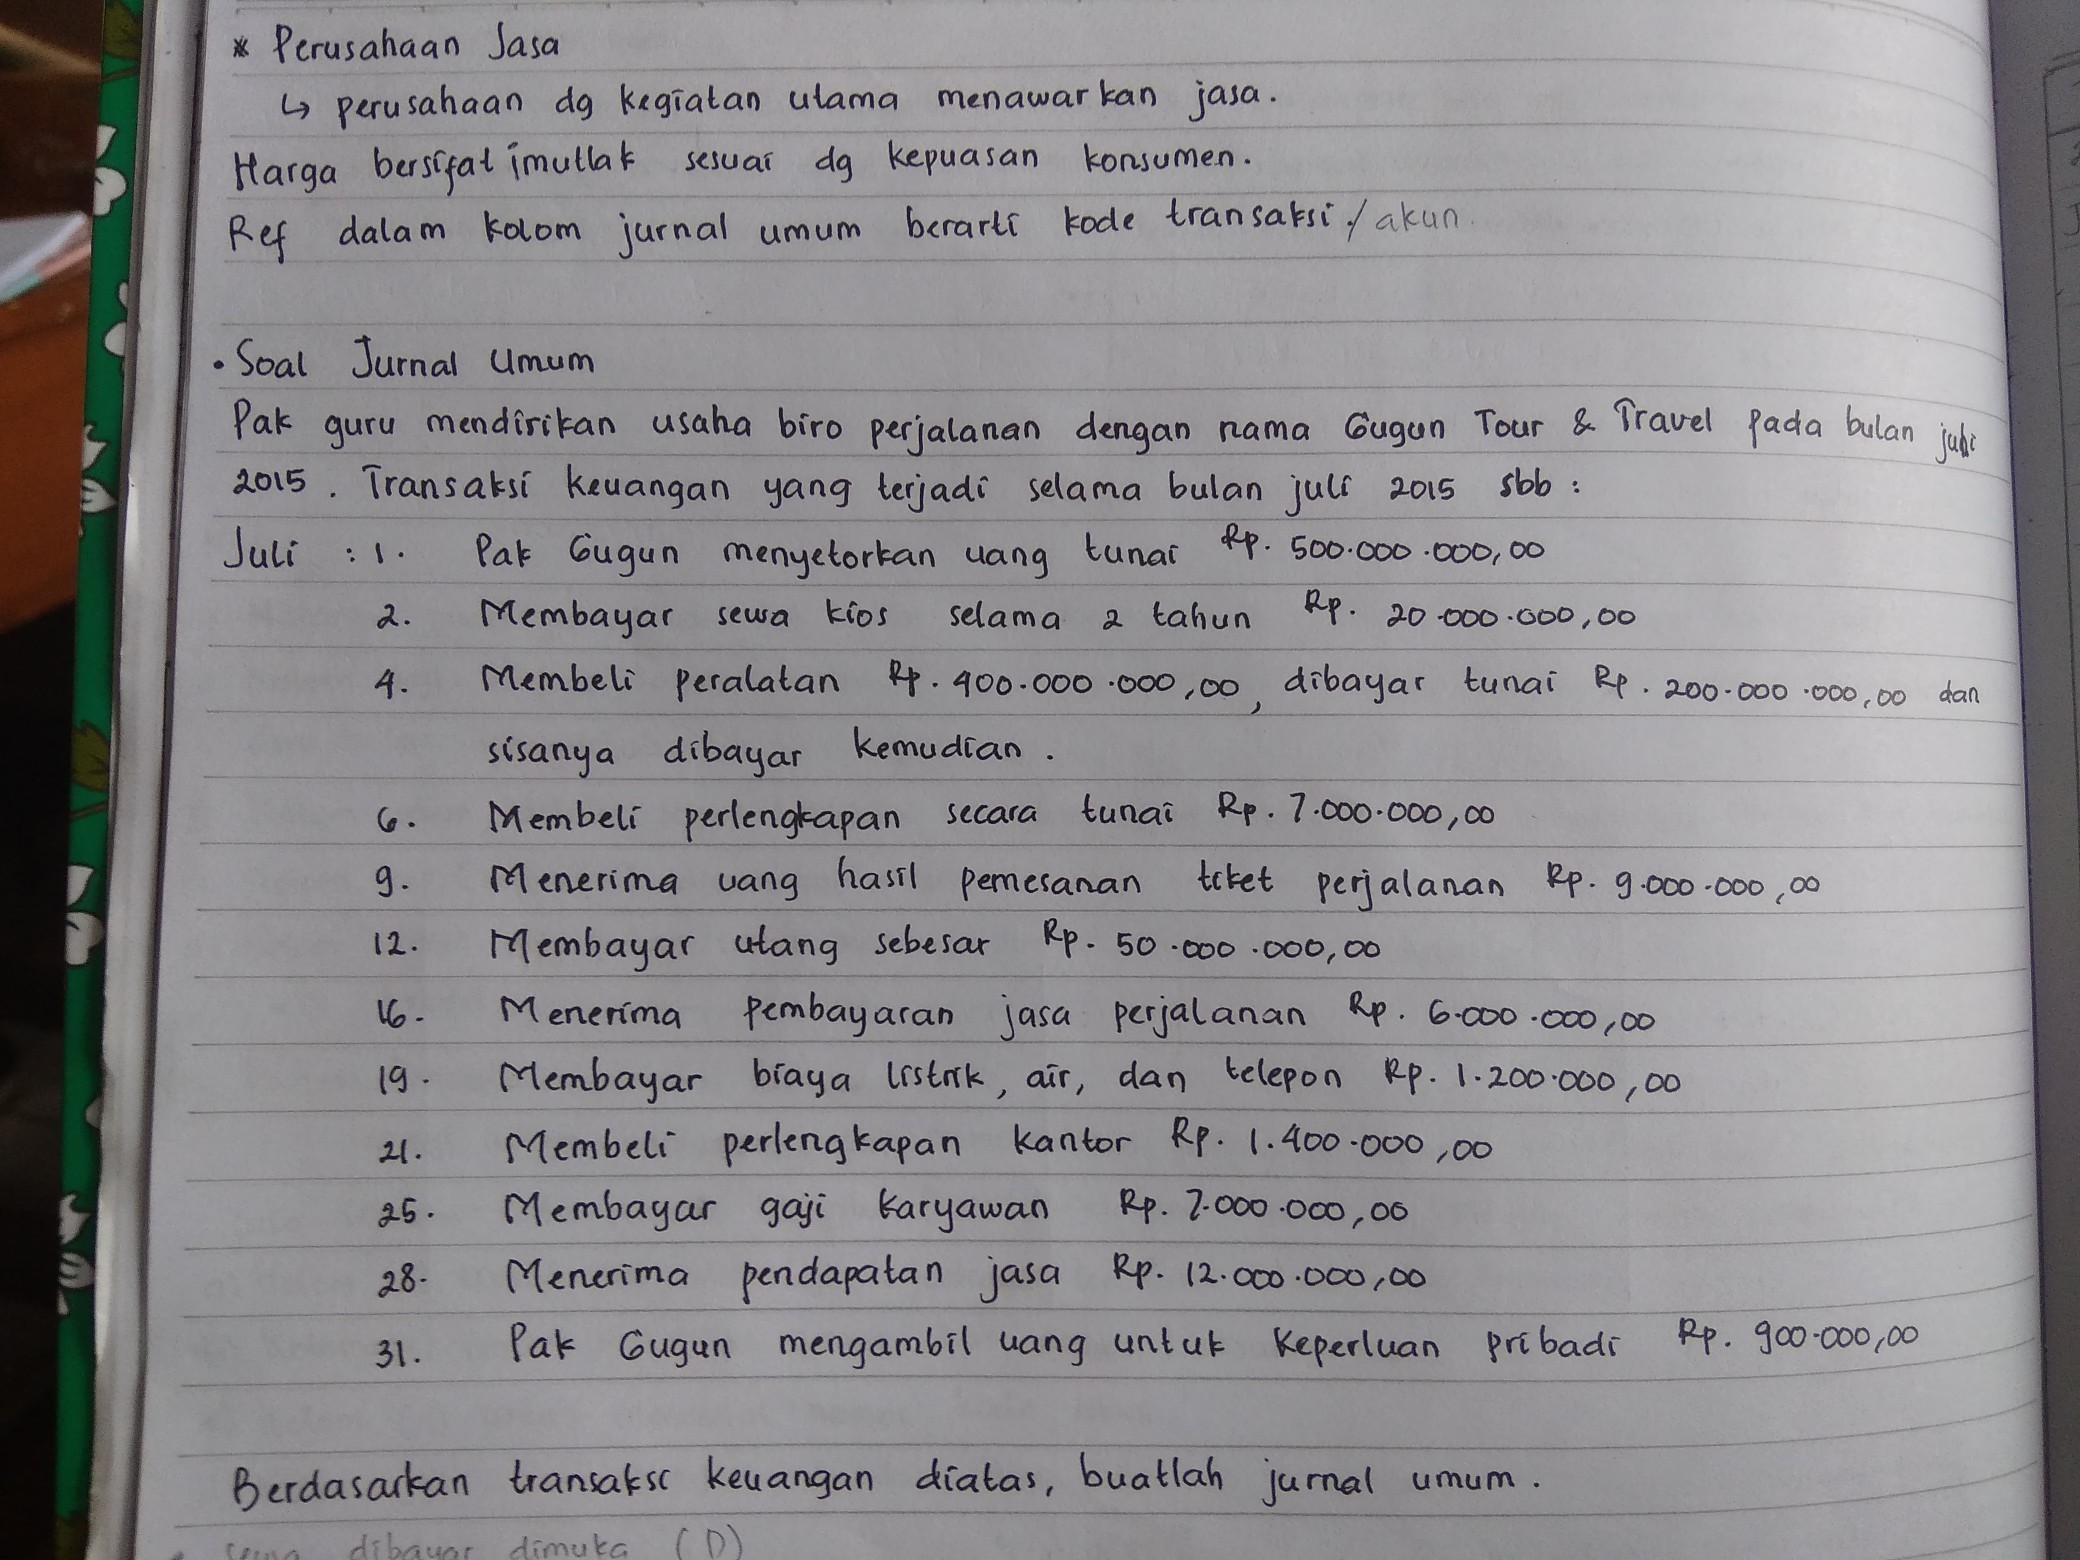 * Perusahaan Jasa
↳ perusahaan dg kegiatan utama menawarkan jasa.
Harga bersifat imutlak sesuai dg kepuasan konsumen.
Ref dalam kolom jurnal umum berarti kode transaksi / akun.
• Soal Jurnal Umum
Pak guru mendirikan usaha biro perjalanan dengan nama Gugun Tour & Travel pada bulan juli
2015. Transaksi keuangan yang terjadi selama bulan juli 2015 sbb :
Juli : 1. Pak Gugun menyetorkan uang tunai Rp. 500.000.000,00
2. Membayar sewa kios selama 2 tahun Rp. 20.000.000,00
4. Membeli peralatan Rp. 400.000.000,00, dibayar tunai Rp. 200.000.000,00 dan
sisanya dibayar kemudian.
6. Membeli perlengkapan secara tunai Rp. 7.000.000,00
9. Menerima uang hasil pemesanan tiket perjalanan Rp. 9.000.000,00
12. Membayar utang sebesar Rp. 50.000.000,00
16. Menerima pembayaran jasa perjalanan Rp. 6.000.000,00
19. Membayar biaya listrik, air, dan telepon Rp. 1.200.000,00
21. Membeli perlengkapan kantor Rp. 1.400.000,00
25. Membayar gaji karyawan Rp. 7.000.000,00
28. Menerima pendapatan jasa Rp. 12.000.000,00
31. Pak Gugun mengambil uang untuk keperluan pribadi Rp. 900.000,00
Berdasarkan transaksi keuangan diatas, buatlah jurnal umum.
sewa dibayar dimuka (D)